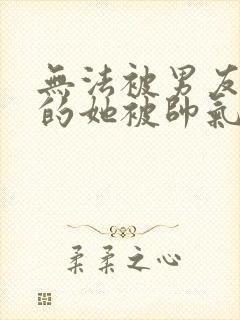 無法被男友
的她被帥氣
柔柔之心